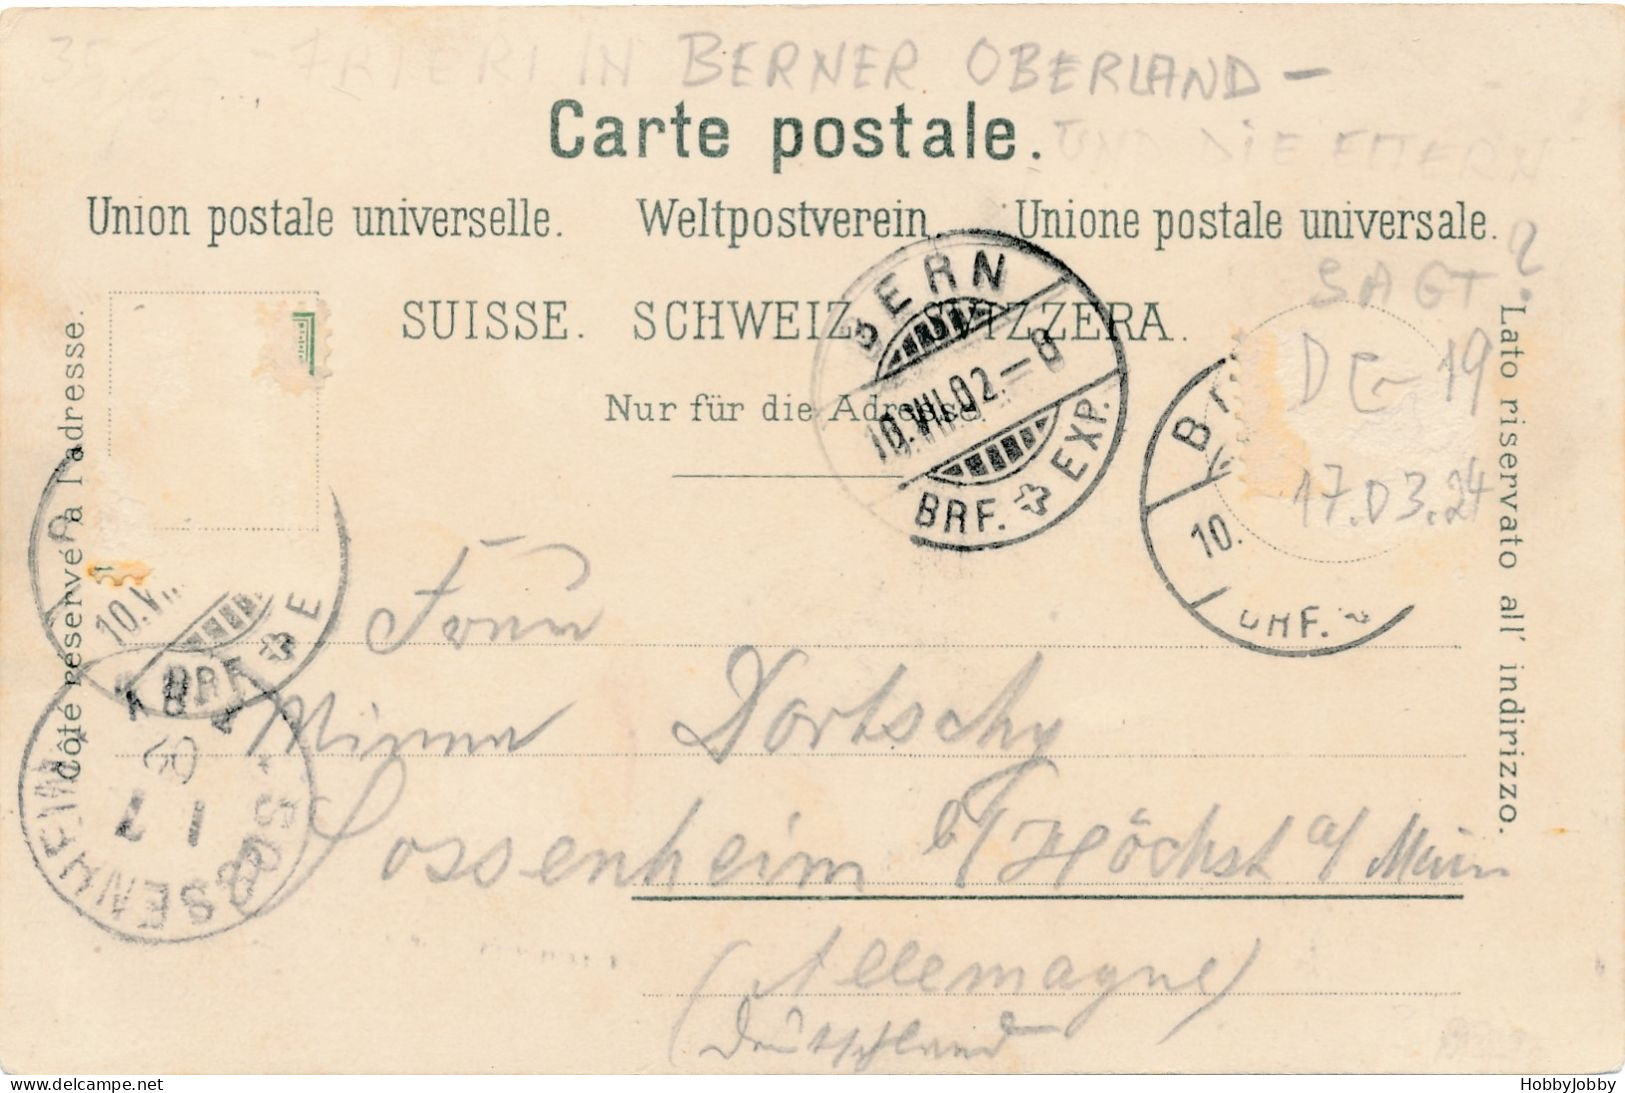 IN BERNER OBERLAND -
Carte postale.
UND DIE
Union postale universelle. Weltpostverein. Unione postale universale.
SUISSE. SCHWEIZ. SVIZZERA.
SAGT
?
Nur für die Adresse.
DG-19
17.03.24
Côté réservé à l'adresse.
Lato riservato all' indirizzo.
BERN
10.VIII.02.-8
BRF. EXP.
10.
BRF.
10.V
BRF. E
SOSSENHEIM
Minna Dortschy
Sossenheim b/ Höchst a/ Main
(Allemagne)
(Deutschland
delcampe.net
HobbyJobby